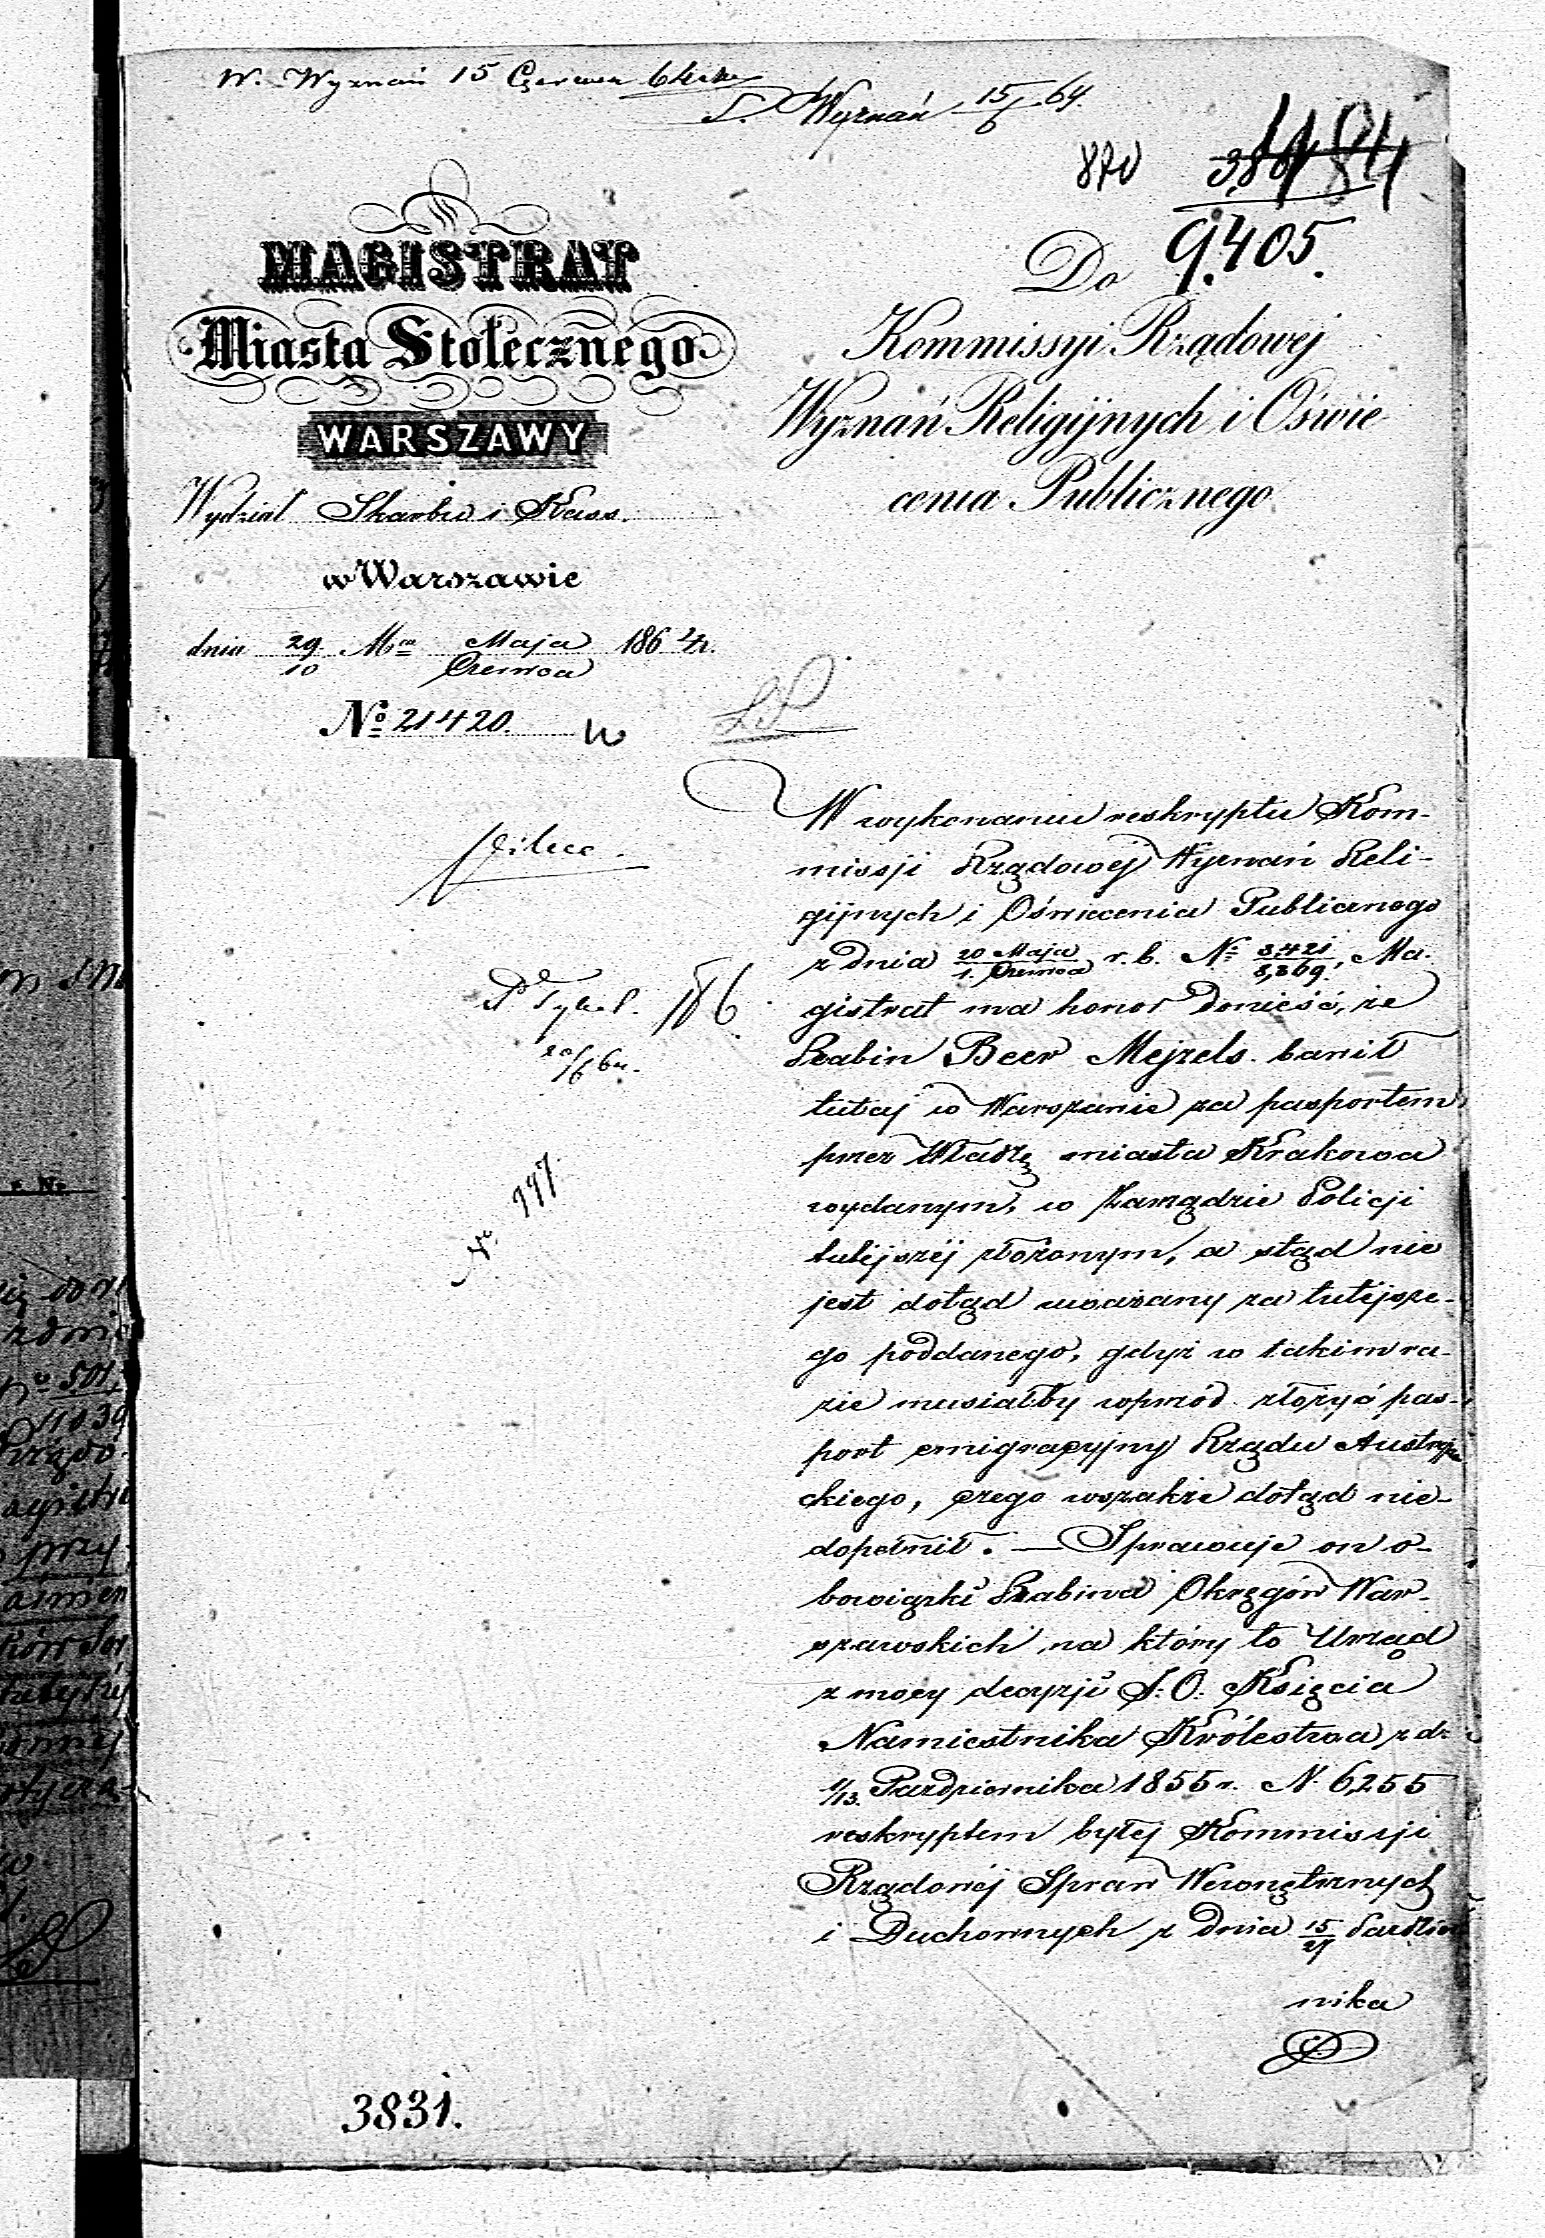 W. Wyznań 15 Czerwca 64
S. Wyznań 15/6 64.
870
184
9.405.
MAGISTRAT
Miasta Stołecznego
WARSZAWY
Wydział Skarbu i Kass.
w Warszawie
dnia 29/10 Mca Maja/Czerwca 1864 r.
No 21420.
Do
Kommissyi Rządowej
Wyznań Religijnych i Oświe
cenia Publicznego
W wykonaniu reskryptu Kom-
missji Rządowéj Wyznań Reli-
gijnych i Oświecenia Publicznego
z dnia 20 Maja/1. Czerwca r. b. No 3,421/8,869, Ma-
gistrat ma honor donieść, że
Rabin Beer Mejzels bawił
tutaj w Warszawie za pasportem
przez Władzę miasta Krakowa
wydanym, w Zarządzie Policji
tutejszéj złożonym, a stąd nie
jest dotąd uważany za tutéjsze-
go poddanego, gdyż w takim ra-
zie musiałby wprzód złożyć pas-
port emigracyjny Rządu Austryja
ckiego, czego wszakże dotąd nie-
dopełnił. — Sprawuje on o-
bowiązki Rabina Okręgów War-
szawskich, na który to Urząd
z mocy decyzji J. O. Księcia
Namiestnika Królestwa z d.
1/13. Października 1855 r. N. 6,255
reskryptem byłéj Kommissji
Rządowéj Spraw Wewnętrznych
i Duchownych z dnia 15/27 Paździer
nika
186
20/6 64.
No 997.
3831.